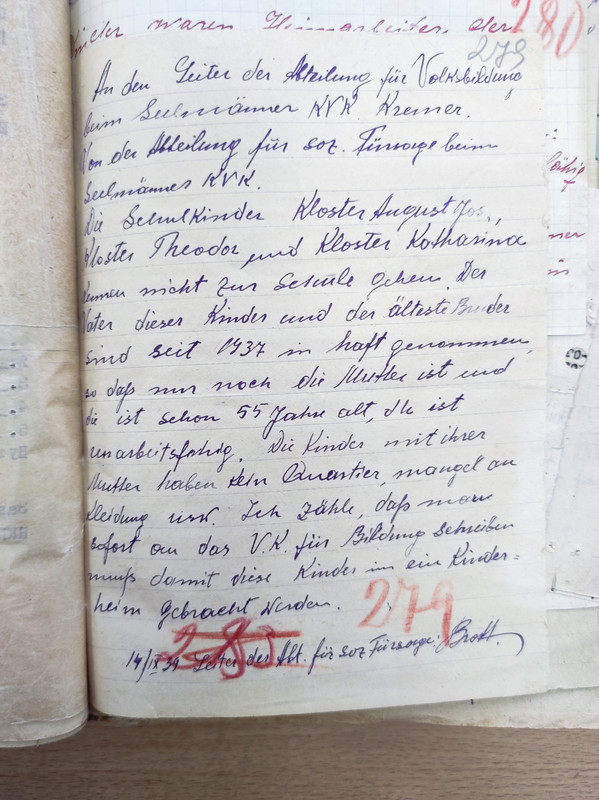 waren Heimarbeiter der
280
279
An den Leiter der Abteilung für Volksbildung
beim Seelmänner KVK Kremer.
Von der Abteilung für soz. Fürsoge beim
Seelmänner KVK.
Die Schulkinder Kloster August Jos.,
Kloster Theodor und Kloster Katharina
kennen nicht zur Schule gehen. Der
Vater dieser Kinder und der älteste Bruder
sind seit 1937 in haft genommen,
so daß nur noch die Mutter ist und
die ist schon 55 Jahre alt, dh ist
unarbeitsfähig. Die Kinder mit ihrer
Mutter haben kein Quartier, mangel an
Kleidung usw. Ich zähle, daß man
sofort an das V.K. für Bildung schreiben
muß damit diese Kinder in ein Kinder=
heim gebracht werden.
279
280
14/IX 39 Leiter der Abt. für soz Fürsorge: Brott.